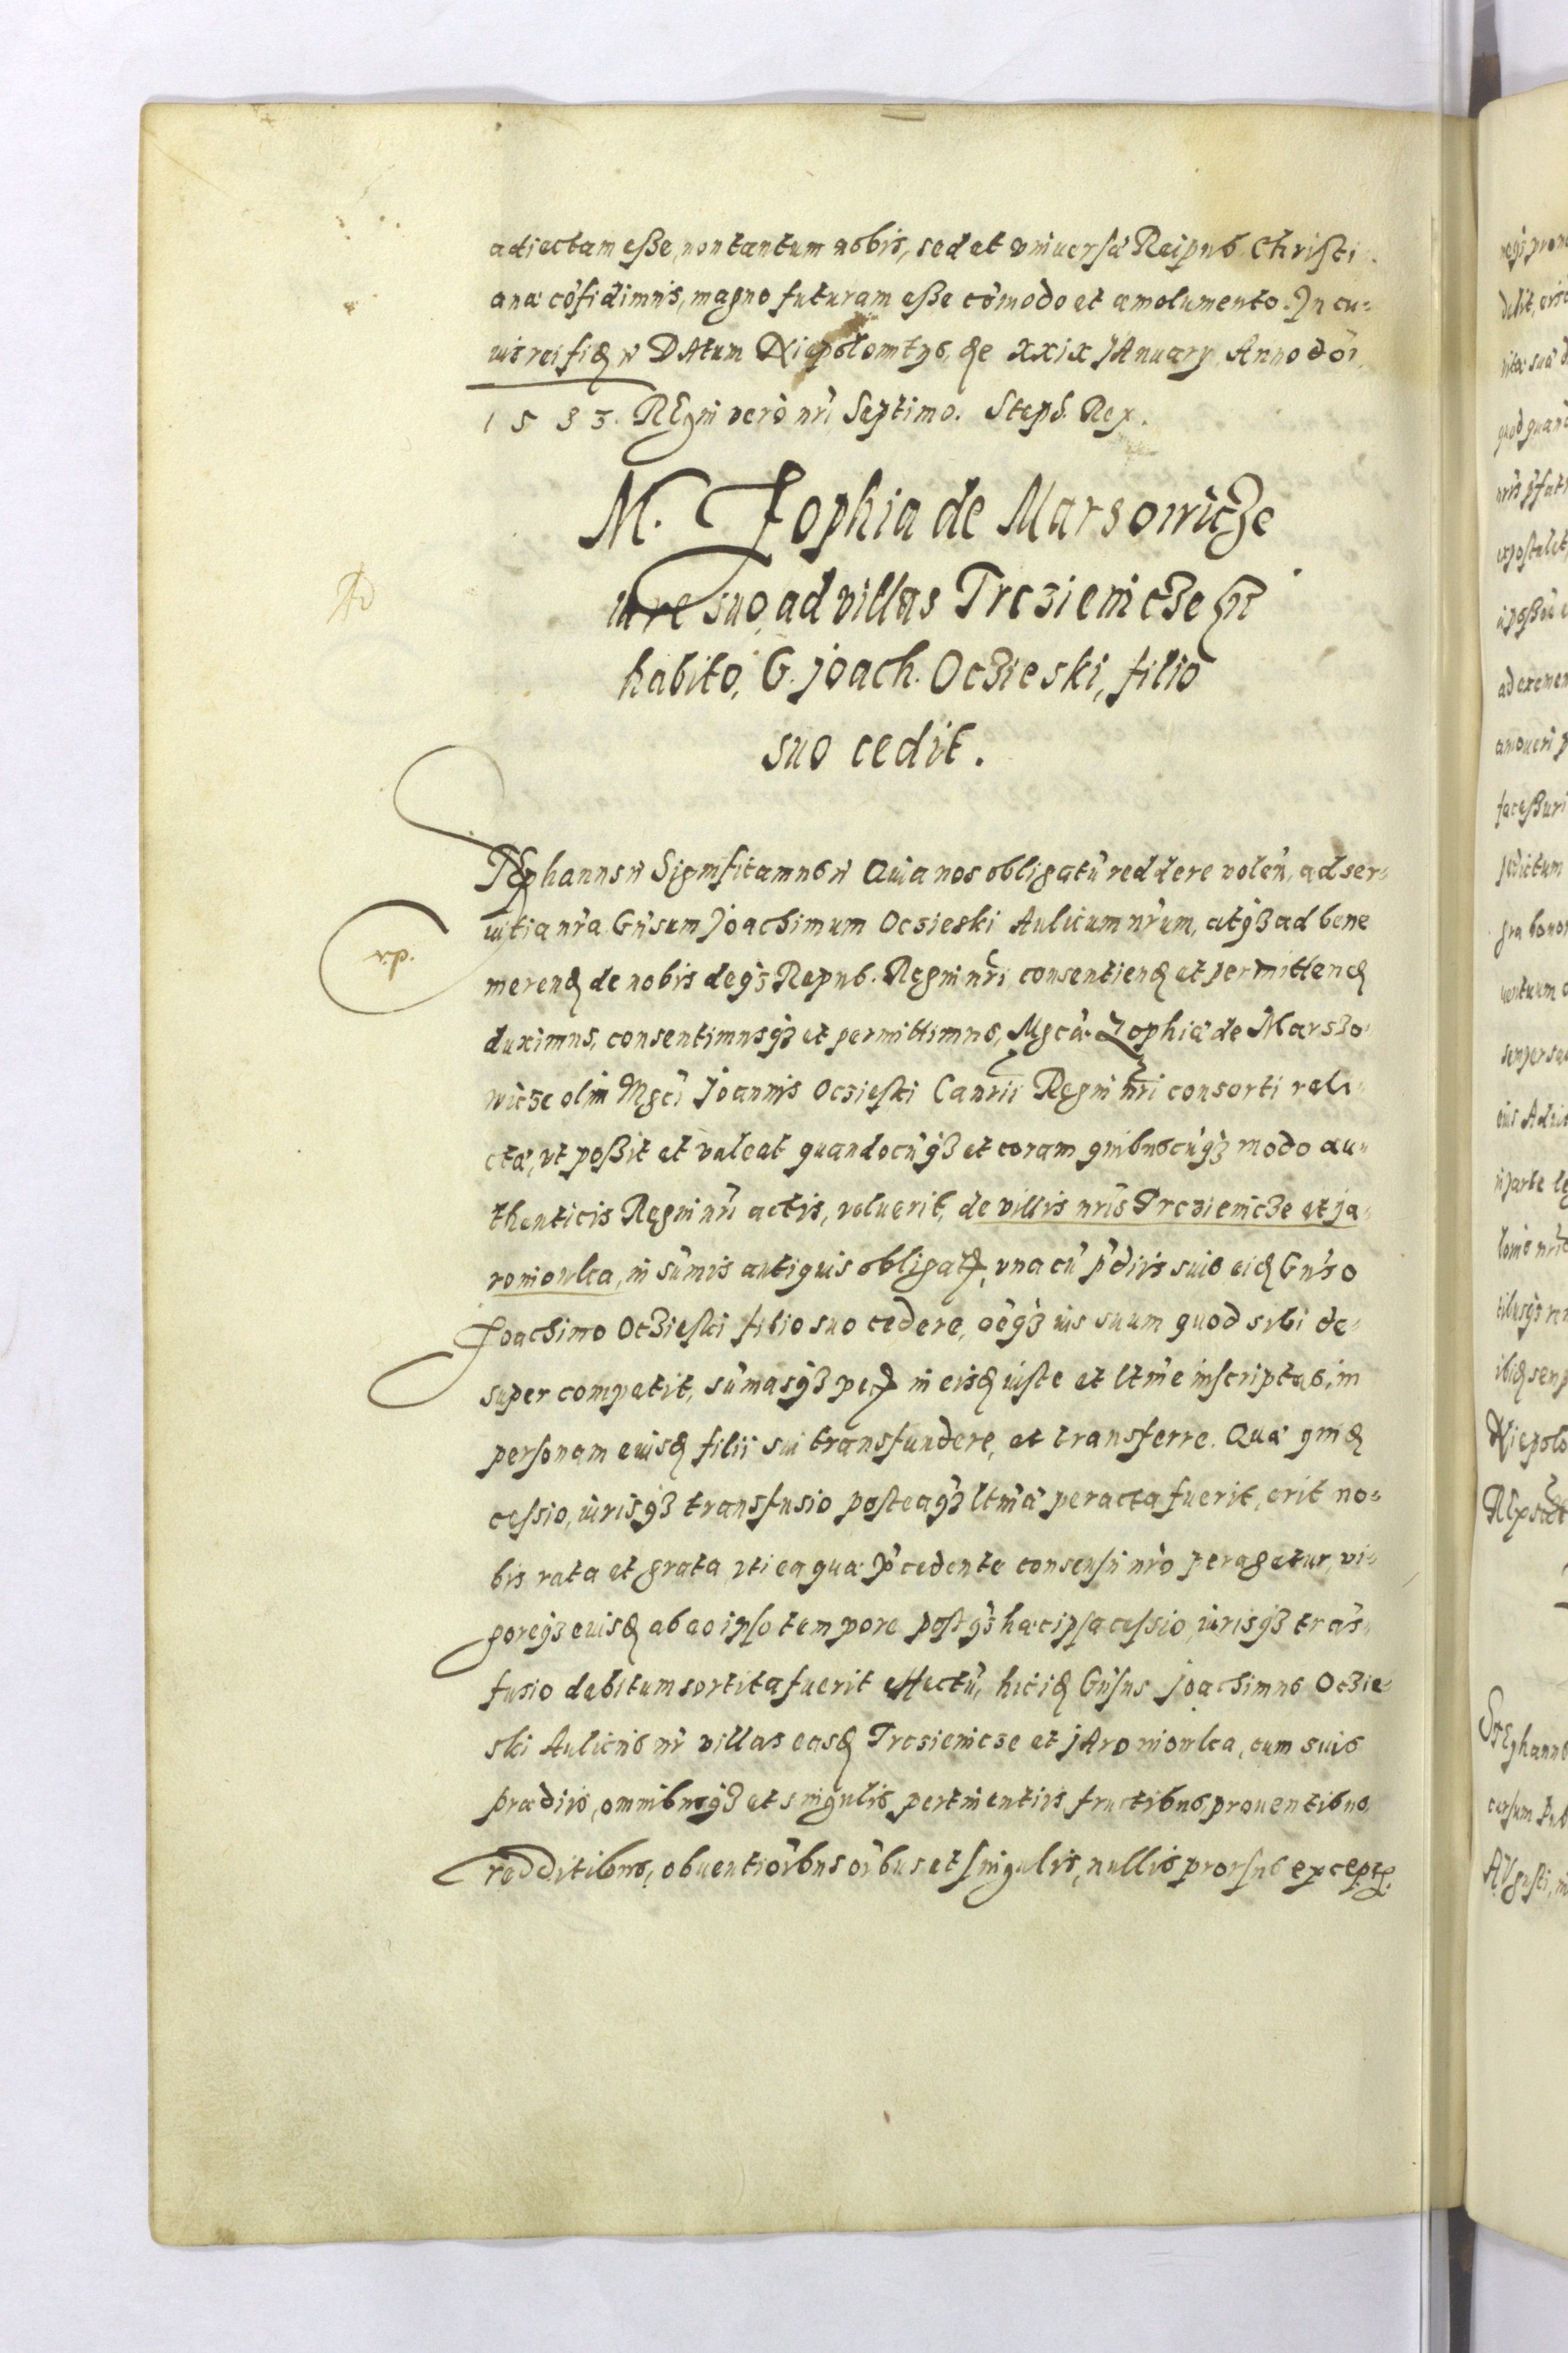 adiectam eße, non tantum nobis, sed et vniuersæ Reipub. Christi
anæ cōfidimus, magno futuram eße cōmodo et emolumento. In cu-
ius rei fidē Datum Niepolomtys, die XXIX January Anno dōi
1583. REgni verò nrī Septimo. Steph. Rex.
M. Zophia de Marsowicze
iure suo ad villas Trczienicze etc
habito, G. joach. Oczieski, filio
suo cedit.
STEphanus Significamus Quia nos obligatū reddere volen. ad ser-
uitia nrā Gnsum Joachimum Oczieski Aulicum nrūm, atqȝ ad bene
merend de nobis deqȝ Repub. Regni nrī, consentiend et permittend
duximus, consentimusqȝ et permittimus, Mgcæ Zophiæ de Marszo
wicze olim Mgci Joannis Oczieski Cancrii Regni nrī consorti reli-
ctæ, vt poßit et valeat quandocūqȝ et coram quibuscūqȝ modo au-
thenticis Regni nrī actis, voluerit, de villis nrīs Trczienicze et ja-
roniowka, in sūmis antiquis obligatis, vna cū pdiis suis eid Gnso
Joachimo Oczieski filio suo cedere, oēqȝ ius suum quod sibi de-
super competit, sūmasqȝ pecz in eisd iuste et ltmē inscriptas, in
personam eiusd filii sui transfundere, et transferre. Quæ quid
cessio, iurisqȝ transfusio posteaqȝ ltmæ peracta fuerit, erit no-
bis rata et grata vti ea quæ pcedente consensu nrō peragetur, vi-
goreqȝ eiusd ab eo ipso tempore postqȝ hæc ipsa cessio, iurisqȝ trās-
fusio debitum sortita fuerit effectū, hic id Gnsus joachimus Oczie-
ski Aulicus nr villas easd Trczienicze et jAroniowka, cum suis
prædiis, omnibusqȝ et singulis pertinentiis fructibus, prouentibus
redditibus, obuentiōibus oībus et singulis, nullis prorsus exceptis.
r.p.